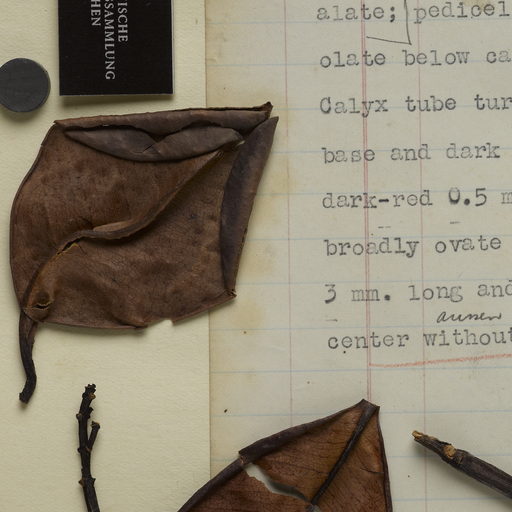 ISCHE
SSAMMLUNG
CHEN
alate; pedicel
olate below ca
Calyx tube tur
base and dark
dark-red 0.5 m
broadly ovate
3 mm. long and
aussen
center without